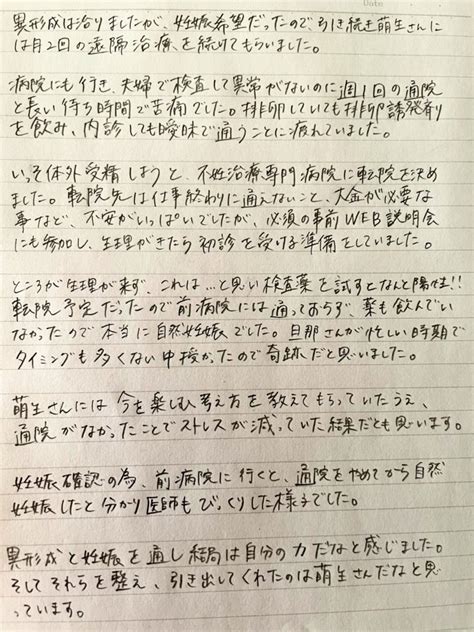 Date
異形成は治りましたが、妊娠希望だったので、引き続き萌生さんに
は月2回の遠隔治療を続けてもらいました。
病院にも行き、夫婦で検査して異常がないのに週1回の通院
と長い待ち時間で苦痛でした。排卵していても排卵誘発剤
を飲み、内診しても曖昧で通うことに疲れていました。
いっそ体外受精しようと、不妊治療専門病院に転院を決め
ました。転院先は仕事終わりに通えないこと、大金が必要な
事など、不安がいっぱいでしたが、必須の事前WEB説明会
にも参加し、生理がきたら初診を受ける準備をしていました。
ところが生理が来ず、これは…と思い検査薬を試すとなんと陽性!!
転院予定だったので前病院には通っておらず、薬も飲んでい
なかったので本当に自然妊娠でした。旦那さんが忙しい時期で
タイミングも多くない中授かったので奇跡だと思いました。
萌生さんには今を楽しむ考え方を教えてもらっていたうえ、
通院がなかったことでストレスが減っていた結果だとも思います。
妊娠確認の為、前病院に行くと、通院をやめてから自然
妊娠したと分かり医師もびっくりした様子でした。
異形成と妊娠を通し結局は自分の力だなと感じました。
そしてそれらを整え、引き出してくれたのは萌生さんだなと思
っています。